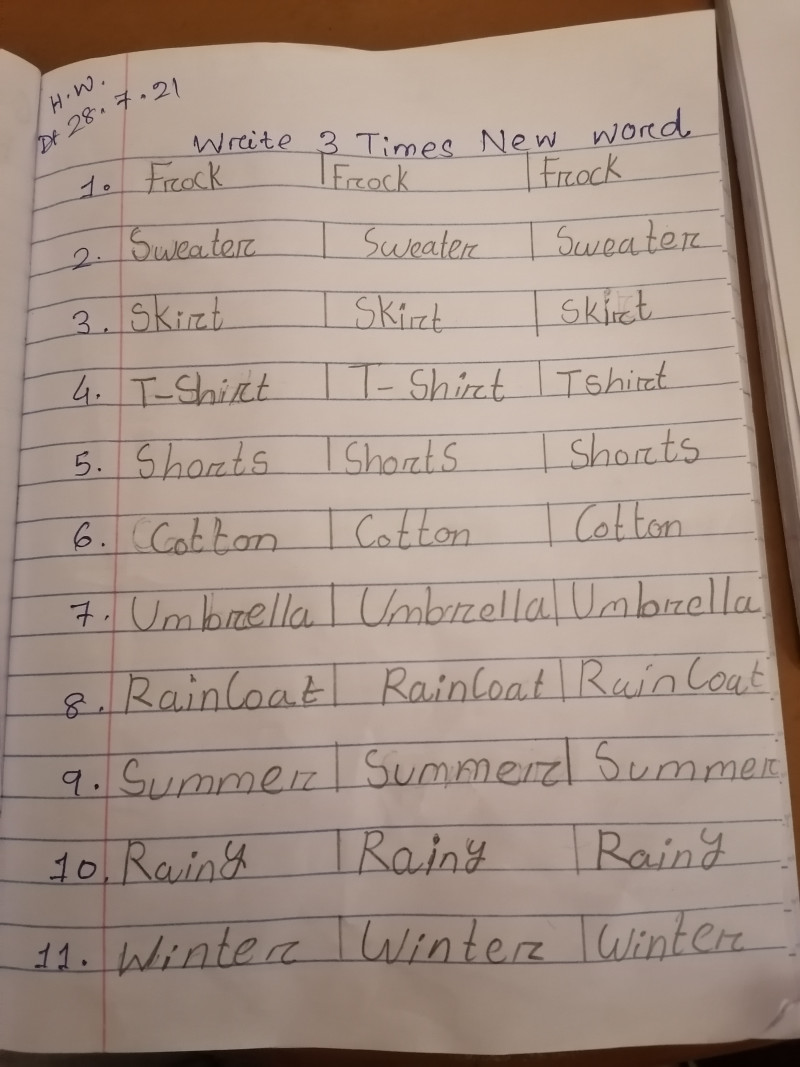 H.W.
Dt 28.7.21
Write 3 Times New word
1. Frock Frock Frock
2. Sweater Sweater Sweater
3. Skirt Skirt Skirt
4. T-Shirt T-Shirt Tshirt
5. Shorts Shorts Shorts
6. Cotton Cotton Cotton
7. Umbrella Umbrella Umbrella
8. RainCoat RainCoat RainCoat
9. Summer Summer Summer
10. Rainy Rainy Rainy
11. Winter Winter Winter